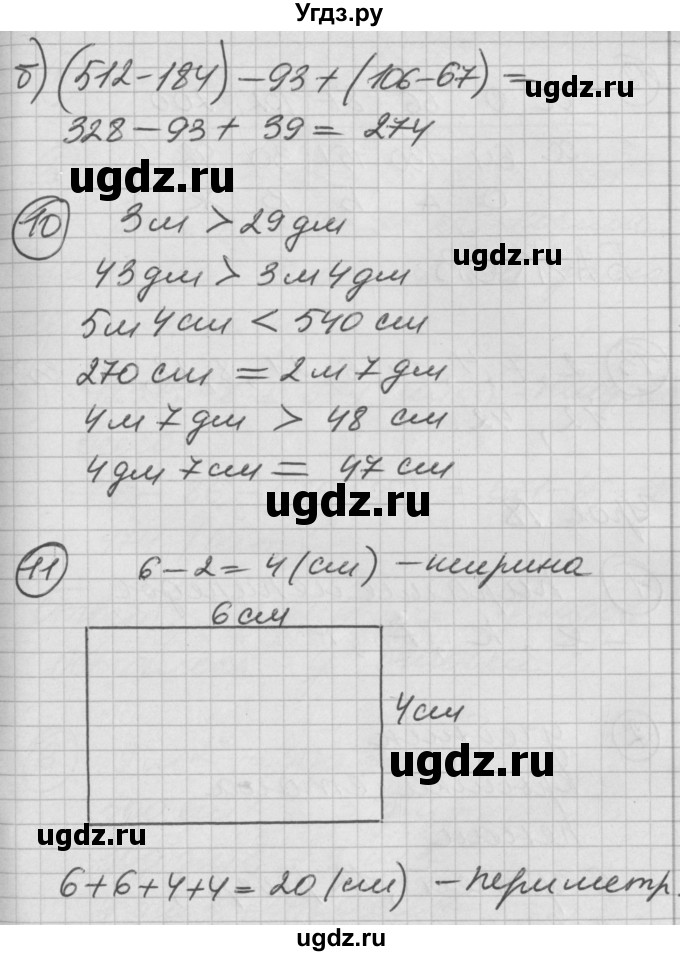 Угдз.ру
б) (512-184) - 93 + (106-67) =
ugdz.ru
328 - 93 + 39 = 274
ugdz.ru
10 3м > 29дм
ugdz.ru
43дм > 3м4дм
5м 4см < 540см
270см = 2м7дм
4м7дм > 48 см
4дм7см = 47см
ugdz.ru
11 6-2=4(см) - ширина
6см
4см
ugdz.ru
ugdz.ru
6+6+4+4=20(см) - периметр.
ugdz.ru